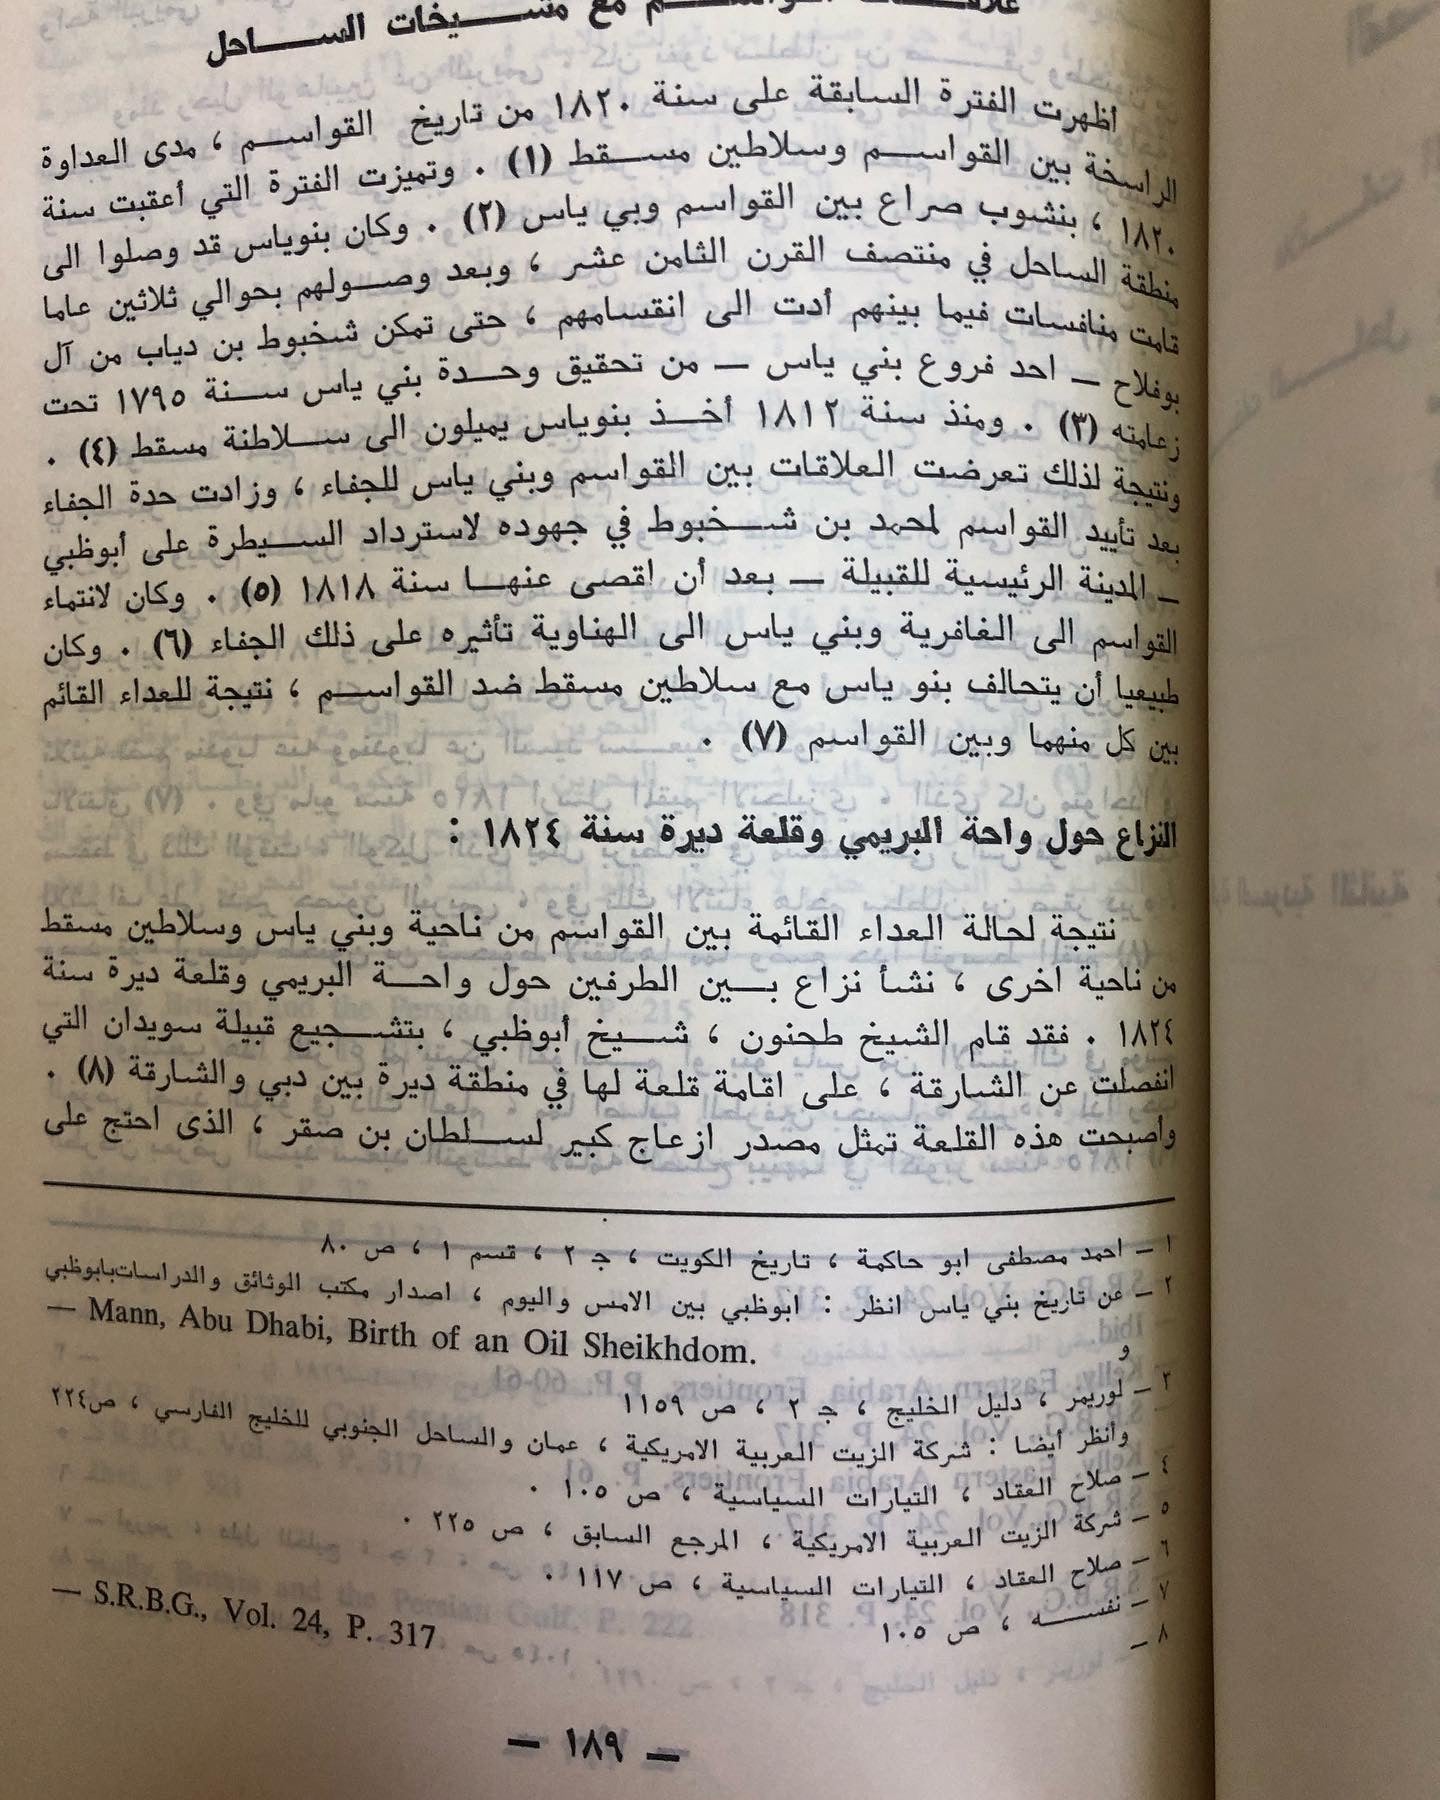 علاقات القواسم مع مشيخات الساحل
أظهرت الفترة السابقة على سنة ١٨٢٠ من تاريخ القواسم ، مدى العداوة
الراسخة بين القواسم وسلاطين مسقط (١) . وتميزت الفترة التي أعقبت سنة
١٨٢٠ ، بنشوب صراع بين القواسم وبي ياس (٢) . وكان بنوياس قد وصلوا الى
منطقة الساحل في منتصف القرن الثامن عشر ، وبعد وصولهم بحوالي ثلاثين عاما
قامت منافسات فيما بينهم أدت الى انقسامهم ، حتى تمكن شخبوط بن دياب من آل
بوفلاح – احد فروع بني ياس – من تحقيق وحدة بني ياس سنة ١٧٩٥ تحت
زعامته (٣) . ومنذ سنة ١٨١٢ أخذ بنوياس يميلون الى سلاطنة مسقط (٤) .
ونتيجة لذلك تعرضت العلاقات بين القواسم وبني ياس للجفاء ، وزادت حدة الجفاء
بعد تأييد القواسم لمحمد بن شخبوط في جهوده لاسترداد السيطرة على أبوظبي
– المدينة الرئيسية للقبيلة – بعد أن اقصى عنها سنة ١٨١٨ (٥) . وكان لانتماء
القواسم الى الغافرية وبني ياس الى الهناوية تأثيره على ذلك الجفاء (٦) . وكان
طبيعيا أن يتحالف بنو ياس مع سلاطين مسقط ضد القواسم ، نتيجة للعداء القائم
بين كل منهما وبين القواسم (٧) .
النزاع حول واحة البريمي وقلعة ديرة سنة ١٨٢٤ :
نتيجة لحالة العداء القائمة بين القواسم من ناحية وبني ياس وسلاطين مسقط
من ناحية اخرى ، نشأ نزاع بين الطرفين حول واحة البريمي وقلعة ديرة سنة
١٨٢٤ . فقد قام الشيخ طحنون ، شيخ أبوظبي ، بتشجيع قبيلة سويدان التي
انفصلت عن الشارقة ، على اقامة قلعة لها في منطقة ديرة بين دبي والشارقة (٨) .
واصبحت هذه القلعة تمثل مصدر ازعاج كبير لسلطان بن صقر ، الذى احتج على
١ – احمد مصطفى ابو حاكمة ، تاريخ الكويت ، جـ ٢ ، قسم ١ ، ص ٨٠
٢ – عن تاريخ بني ياس انظر : ابوظبي بين الامس واليوم ، اصدار مكتب الوثائق والدراسات بابوظبي
و
— Mann, Abu Dhabi, Birth of an Oil Sheikhdom.
٣ – لوريمر ، دليل الخليج ، جـ ٢ ، ص ١١٥٩
وأنظر أيضا : شركة الزيت العربية الامريكية ، عمان والساحل الجنوبي للخليج الفارسي ، ص٢٢٤
٤ – صلاح العقاد ، التيارات السياسية ، ص ١٠٥ .
٥ – شركة الزيت العربية الامريكية ، المرجع السابق ، ص ٢٢٥ .
٦ – صلاح العقاد ، التيارات السياسية ، ص ١١٧ .
٧ – نفسه ، ص ١٠٥
٨ –
— S.R.B.G., Vol. 24, P. 317
— ١٨٩ —